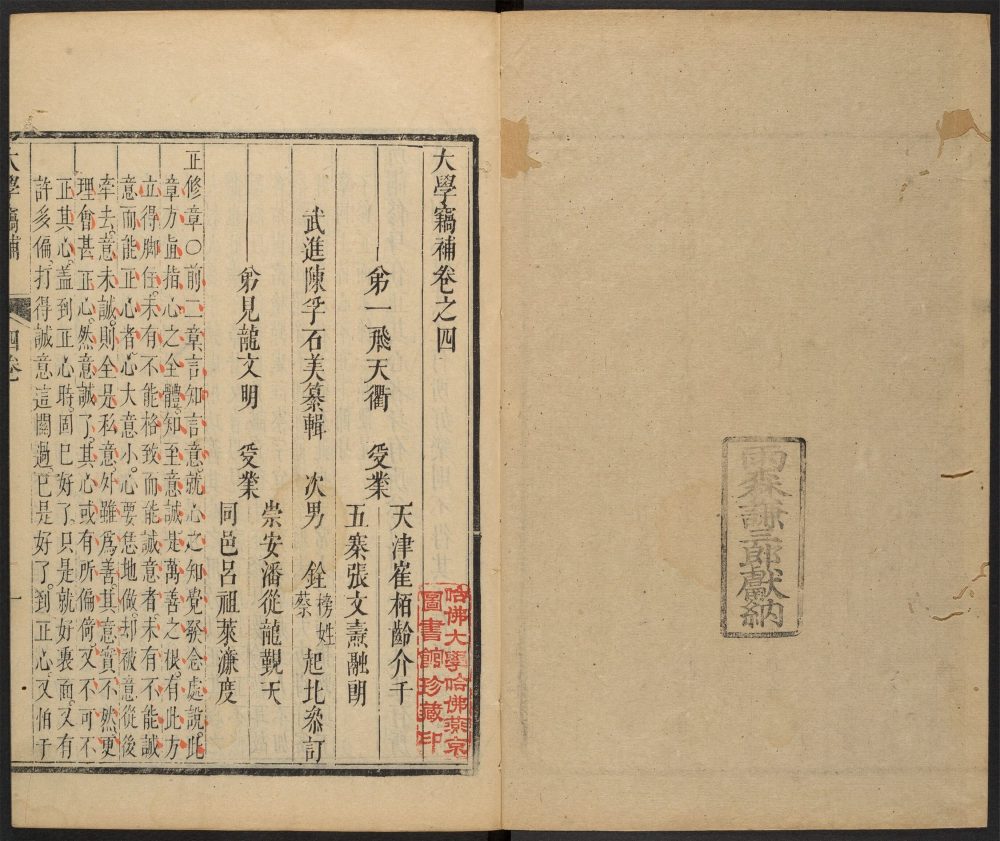 雨森謙三郎獻納
大學竊補卷之四
哈佛大學哈佛燕京
圖書館珍藏印
弟一飛天衢 受業 天津崔栢齡介千
五寨張文燾融朗
武進陳孚石美纂輯 次男 銓 榜姓蔡 起北叅訂
弟見龍文明 受業 崇安潘從龍覲天
同邑呂祖萊濂度
正修章○前二章言知言意就心之知覺發念處說此
章方直指心之全體知至意誠是萬善之根有此方
立得脚住未有不能格致而能誠意者未有不能誠
意而能正心者心大意小心要恁地做却被意從後
牽去意未誠則全是私意外雖為善其意實不然更
理會甚正心然意誠了其心或有所偏倚又不可不
正其心盖到正心時固已好了只是就好裏面又有
許多偏打得誠意這關過已是好了到正心又怕于
大學竊補 四卷 一